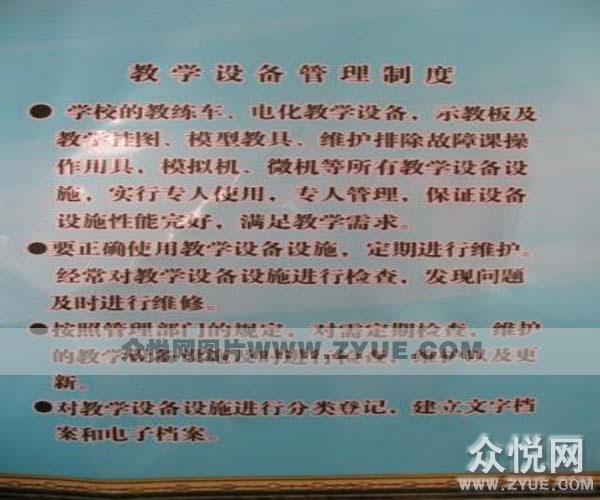 教学设备管理制度
● 学校的教练车、电化教学设备，示教板及
教学挂图、模型教具、维护排除故障课操
作用具，模拟机、微机等所有教学设备设
施，实行专人使用，专人管理，保证设备
设施性能完好，满足教学需求。
●要正确使用教学设备设施，定期进行维护。
经常对教学设备设施进行检查，发现问题
及时进行维修。
●按照管理部门的规定，对需定期检查、维护
众悦网图片WWW.ZYUE.COM
的教学 及更
新。
●对教学设备设施进行分类登记，建立文字档
案和电子档案。
众悦网
WWW.ZYUE.COM